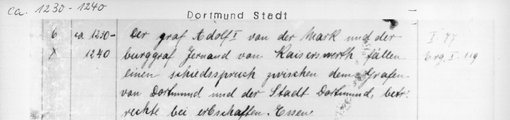 ca. 1230 - 1240
Dortmund Stadt
6 ca 1230- Der graf Adolf I von der Mark und der I 77
X 1240 burggraf Gernand von Kaiserswerth fällen Erg. I. 119
einen schiedsspruch zwischen dem Grafen
von Dortmund und der Stadt Dortmund, betr.
rechte bei erbschaften. Essen